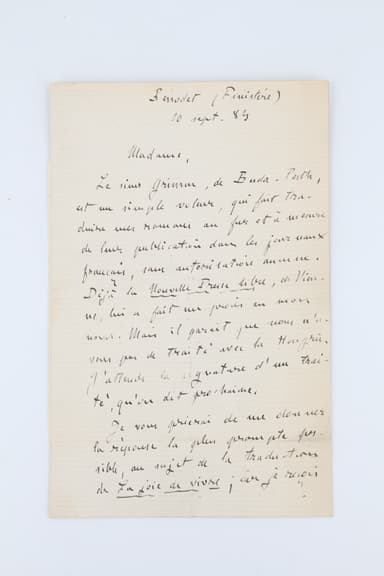 Bénodet (Finistère)
10 sept. 83
Madame,
Le sieur Grimm, de Buda-Pesth,
est un simple voleur, qui fait tra-
duire mes romans au fur et à mesure
de leur publication dans les journaux
français, sans autorisation aucune.
Déjà la Nouvelle Presse libre, de Vien-
ne, lui a fait un procès en mon
nom. Mais il paraît que nous n'a-
vons pas de traité avec la Hongrie.
J'attends la signature d'un trai-
té, qu'on dit prochaine.
Je vous prierai de me donner
la réponse la plus prompte pos-
sible, au sujet de la traduction
de La joie de vivre ; car je reçois